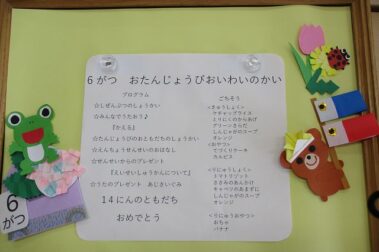 6がつ　おたんじょうびおいわいのかい
プログラム
☆しぜんぶつのしょうかい
☆みんなでうたおう♪
『かえる』
☆たんじょうびのおともだちのしょうかい
☆えんちょうせんせいのおはなし
☆せんせいからのプレゼント
『えいせいしゅうかんについて』
☆うたのプレゼント　あじさいぐみ
14にんのともだち
おめでとう
ごちそう
<きゅうしょく>
ケチャップライス
とりにくのからあげ
グリーンサラダ
しんじゃがのスープ
オレンジ
<おやつ>
てづくりケーキ
カルピス
<りにゅうしょく>
トマトリゾット
ささみのあんかけ
キャベツのあまずに
しんじゃがのスープ
オレンジ
<りにゅうおやつ>
おちゃ
バナナ
6
がつ